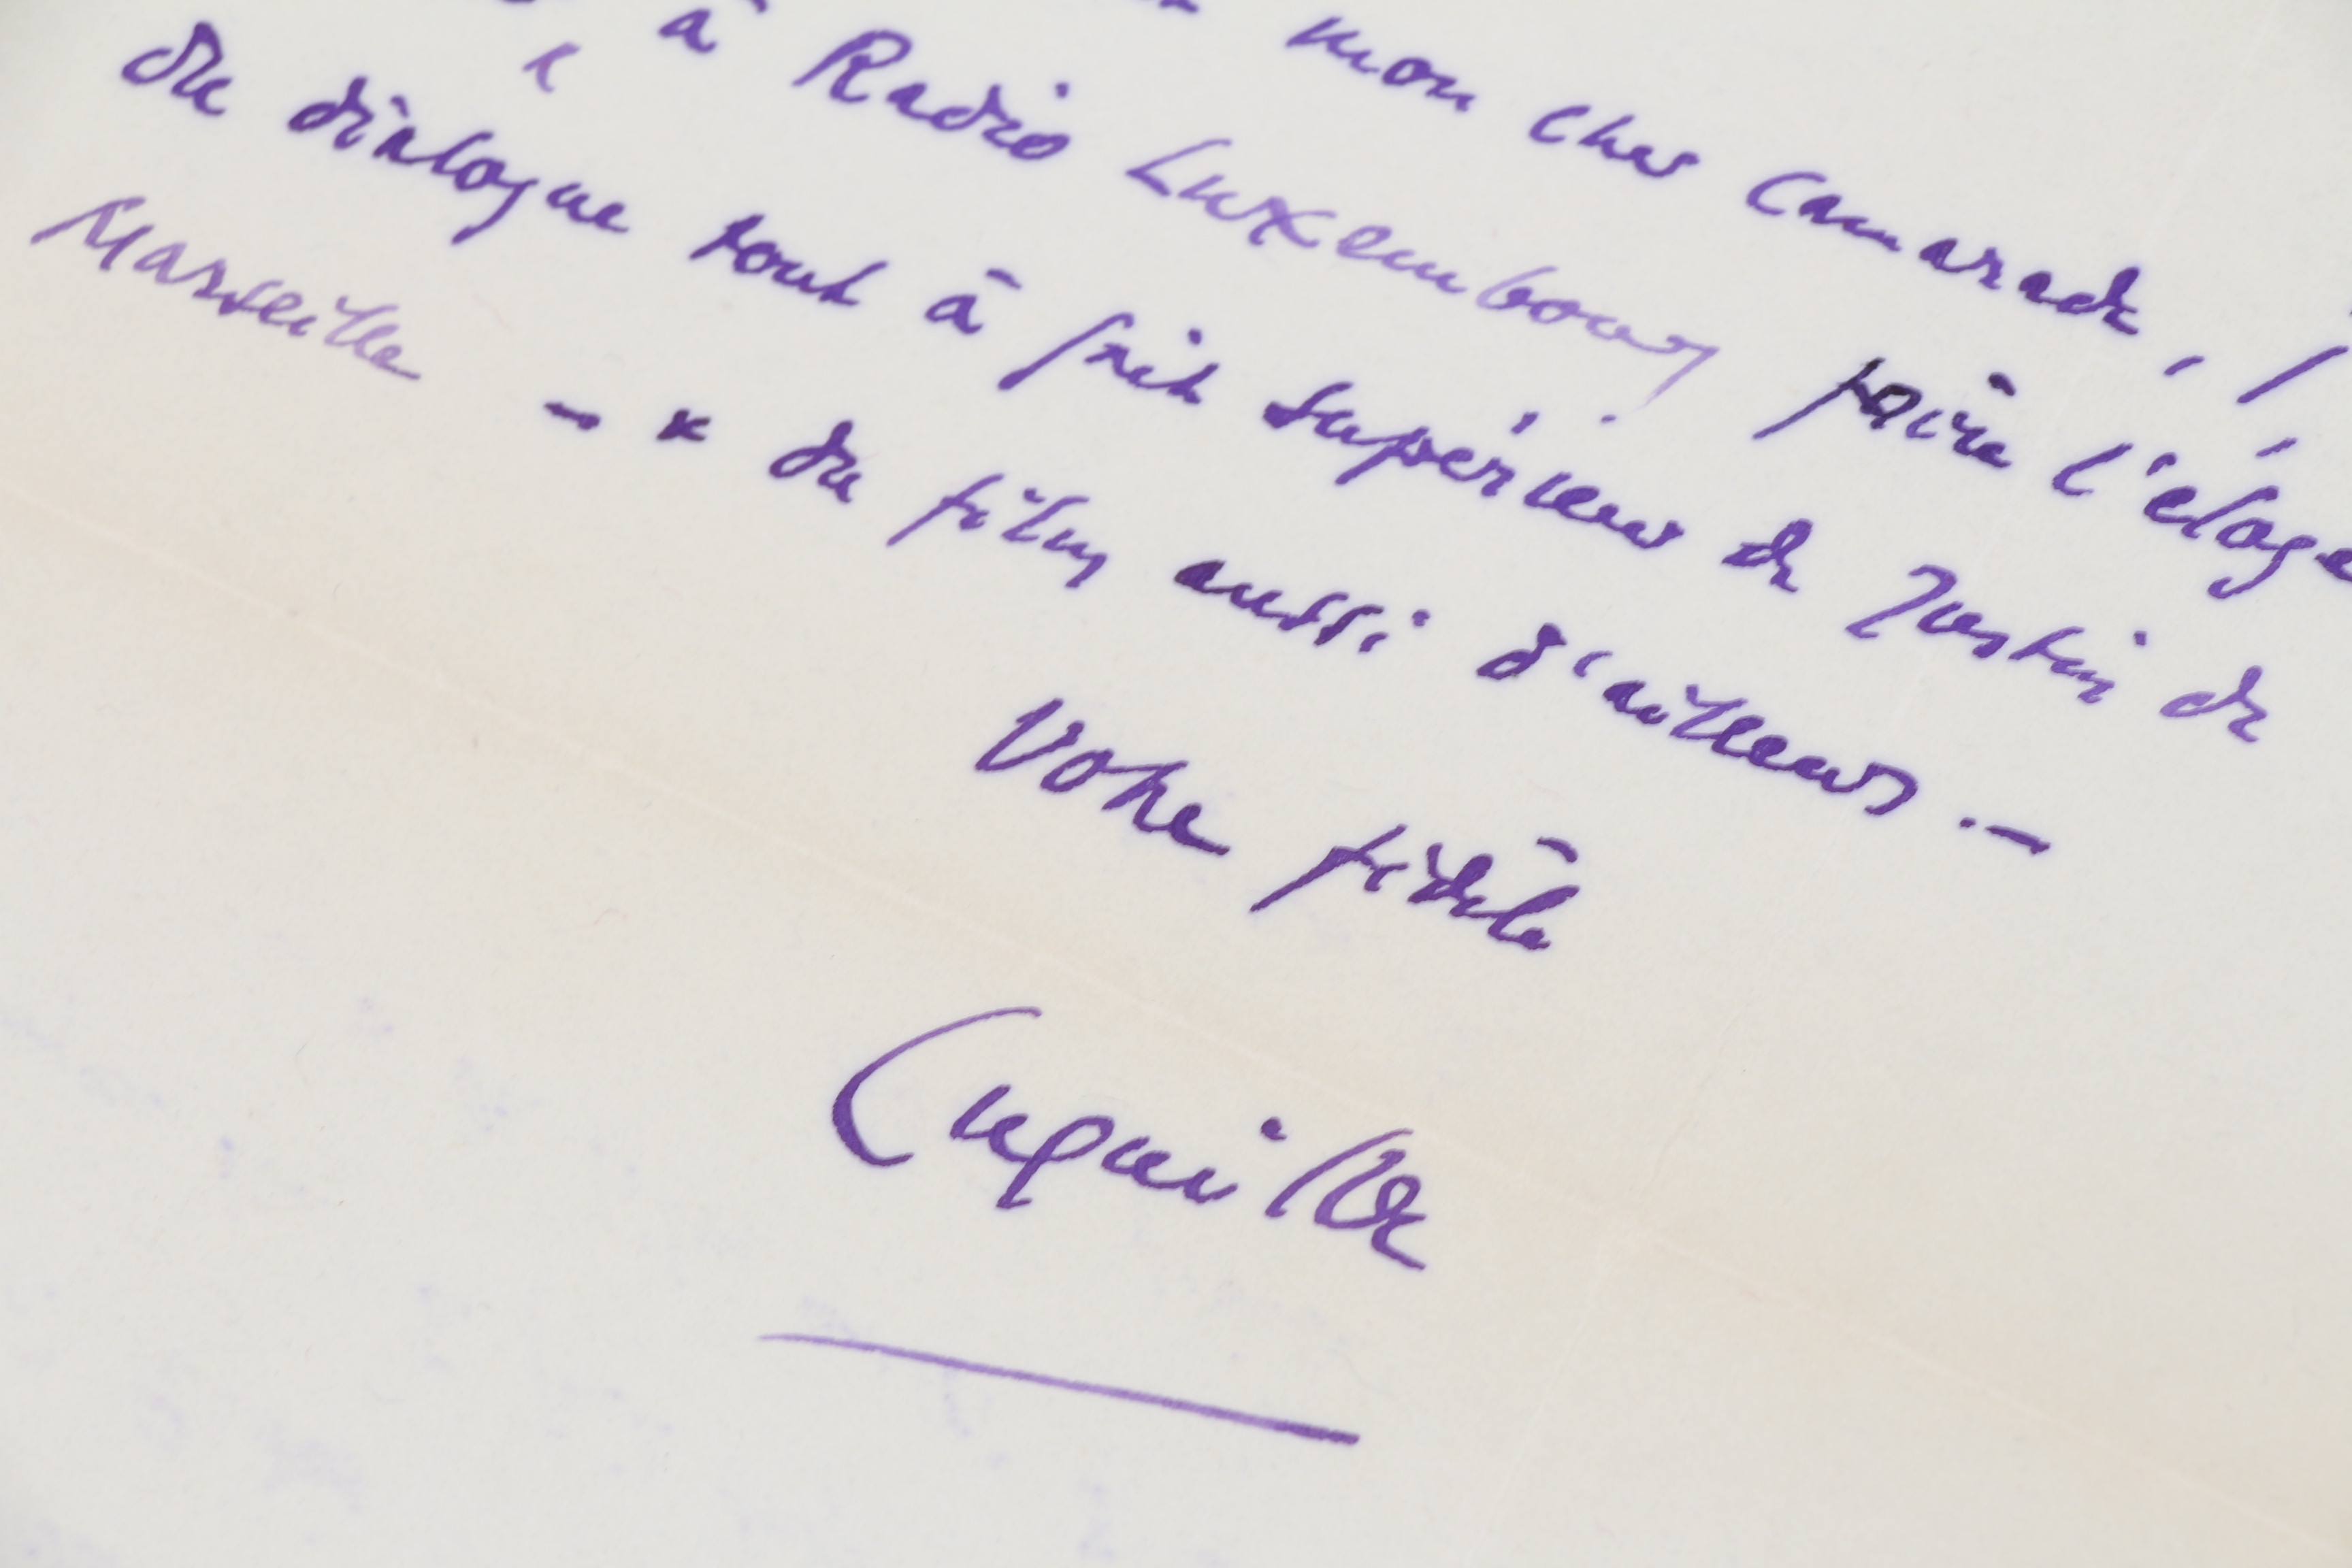 mon cher camarade,
à Radio Luxembourg faire l'éloge
du dialogue tout à fait supérieur de Justin de
Marseille - x du film aussi d'ailleurs. -
Votre fidèle